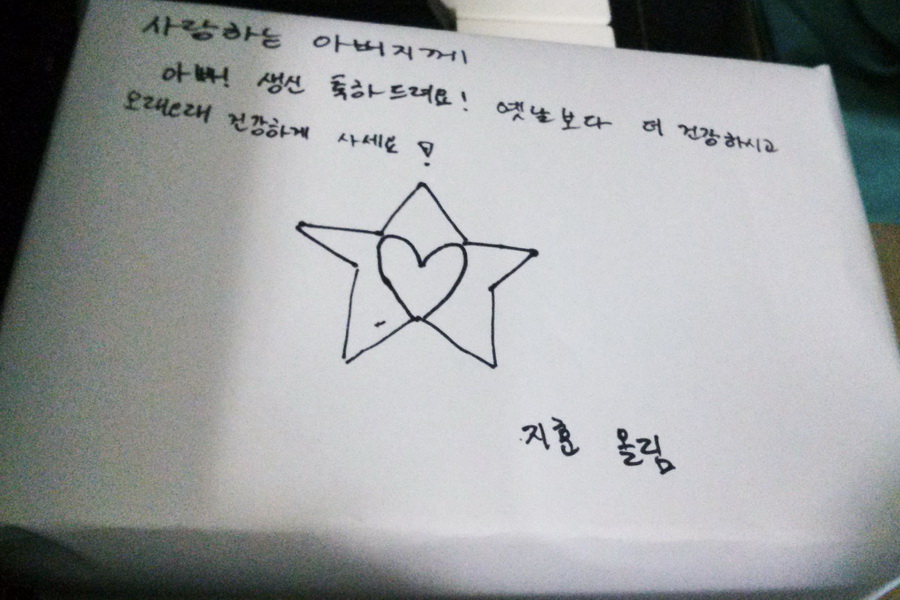 사랑하는 아버지께
아빠! 생신 축하드려요! 옛날보다 더 건강하시고
오래오래 건강하게 사세요!
지훈 올림